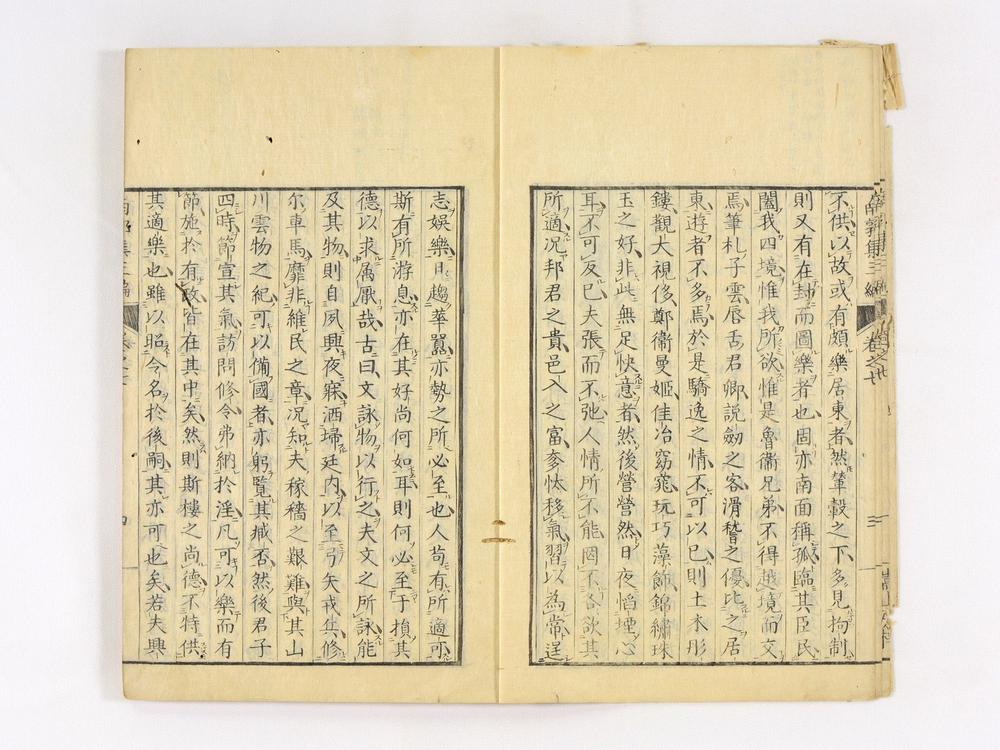 不供以故或有頗樂居東者然輦轂之下多見拘制
則又有在封而圖樂者也固亦南面稱孤臨其臣民
闔我四境惟我所欲惟是魯衞兄弟不得越境而交
焉筆札子雲唇舌君卿說劔之客滑稽之優比之居
東遊者不多焉於是驕逸之情不可以已則土木彤
鏤觀大視侈鄭衞曼姬佳冶窈窕玩巧藻飾錦繡珠
玉之好非此無足快意者然後營營然日夜慆堙心
耳不可反已夫張而不弛人情所不能固不各欲其
所適况邦君之貴邑入之富奓忲移氣習以為常逞
志娛樂日趨華囂亦勢之所必至也人苟有所適亦
斯有所游息亦在其好尚何如耳則何必至于損其
德以求厲厭哉古曰文詠物以行之夫文之所詠能
及其物則自夙興夜寐洒埽廷內以至弓矢戎兵修
尔車馬靡非維民之章况知夫稼穡之艱難與其山
川雲物之紀可以備國者亦躬覽其臧否然後君子
四時節宣其氣訪問修令弗納於淫凡可以樂而有
節施於有政皆在其中矣然則斯樓之尚德不特供
其適樂也雖以昭令名於後嗣其亦可也矣若夫興